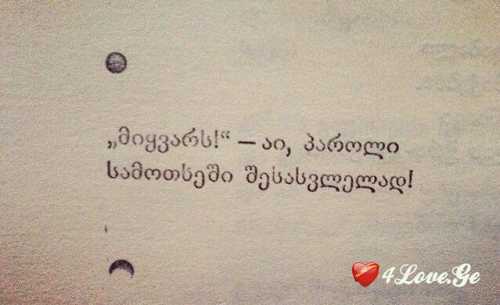 „მიყვარს!“ — აი, პაროლი
სამოთხეში შესასვლელად!
4Love.Ge